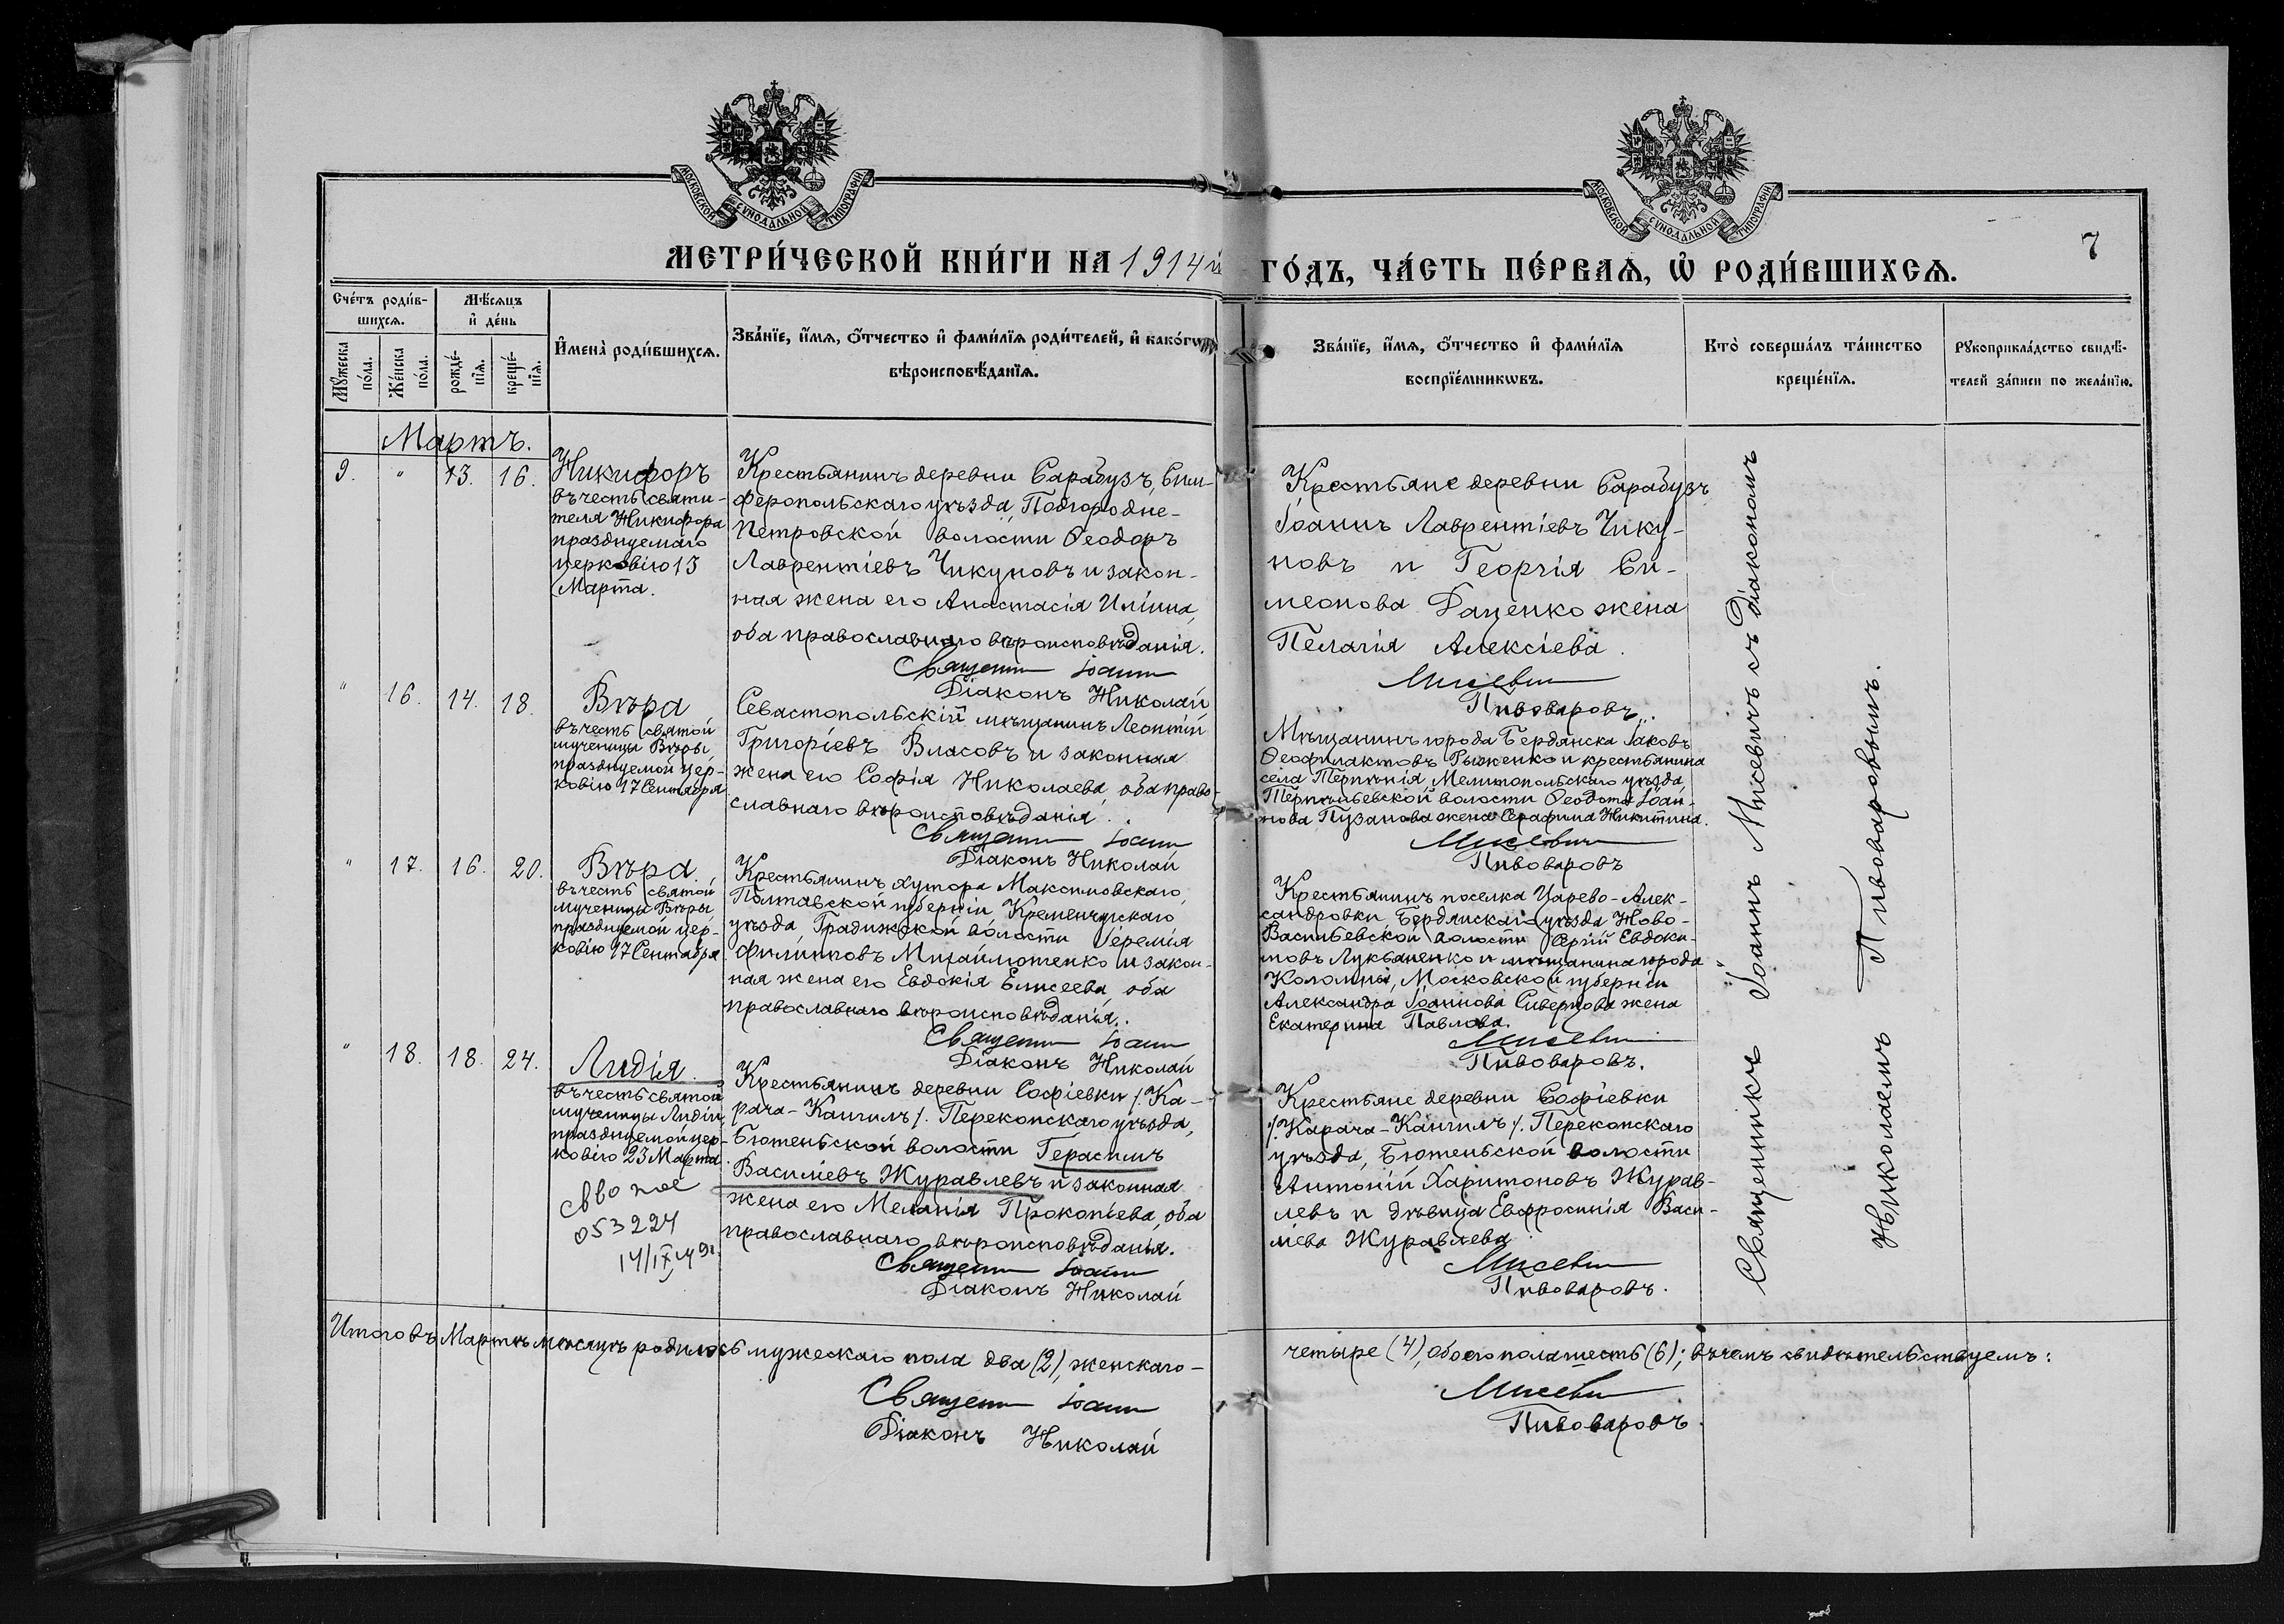 МОСКОВСКОЙ СУНОДАЛЬНОЙ ТИПОГРАФІИ
МОСКОВСКОЙ СУНОДАЛЬНОЙ ТИПОГРАФІИ
7
МЕТРИ́ЧЕСКОЙ КНИ́ГИ НА 1914й ГО́ДЪ, ЧА́СТЬ ПЕ́РВАѦ, Ѡ РОДИ́ВШИХСѦ.
Счéтъ роди́в-
шихсѧ.
Мѣ́сѧцъ
и҆ де́нь
Мꙋ́жеска
по́ла.
Же́нска
по́ла.
рожде́-
нїѧ.
креще́-
нїѧ.
И҆мена̀ роди́вшихсѧ.
Зва́нїе, и҆́мѧ, ѻ҆́тчество и҆ фами́лїѧ роди́телей, и҆ како́гѡ
вѣроисповѣ́данїѧ.
Зва́нїе, и҆́мѧ, ѻ҆́тчество и҆ фами́лїѧ
воспрїе́мникѡвъ.
Кто̀ соверша́лъ та́инство
креще́нїѧ.
Рꙋкоприкла́дство свидѣ́-
телей за́писи по жела́нїю.
Мартъ.
9. " 13. 16.
Никифоръ
въ честь святи-
теля Никифора
празднуемаго
церковію 13
Марта.
Крестьянинъ деревни Сарабузъ, Сим-
феропольскаго уѣзда, Подгородне-
Петровской волости Ѳеодоръ
Лаврентіевъ Чикуновъ и закон-
ная жена его Анастасія Иліина,
оба православнаго вѣроисповѣданія.
Священн Іоанн
Діаконъ Николай
Крестьяне деревни Сарабузъ
Іоаннъ Лаврентіевъ Чику-
новъ и Георгія Си-
меонова Даценко жена
Пелагія Алексіева.
Мисевич
Пивоваровъ.
" 16. 14. 18.
Вѣра
въ честь святой
мученицы Вѣры
празднуемой цер-
ковію 17 Сентября
Севастопольскій мѣщанинъ Леонтій
Григоріевъ Власовъ и законная
жена его Софія Николаева, оба право-
славнаго вѣроисповѣданія.
Священн Іоанн
Діаконъ Николай
Мѣщанинъ города Бердянска Іаковъ
Ѳеофилактовъ Рыженко и крестьянина
села Терпѣнія, Мелитопольскаго уѣзда,
Терпѣньевской волости Ѳеодота Іоан-
нова Пузанова жена Серафима Никитина.
Мисевич
Пивоваровъ
" 17. 16. 20.
Вѣра.
въ честь святой
мученицы Вѣры
празднуемой цер-
ковію 17 Сентября
Крестьянинъ хутора Максимовскаго,
Полтавской губерніи, Кременчугскаго
уѣзда, Градижской волости Іеремія
Филипповъ Михайлютенко и закон-
ная жена его Евдокія Елисеева, оба
православнаго вѣроисповѣданія.
Священн Іоанн
Діаконъ Николай
Крестьянинъ поселка Царево-Алек-
сандровки Бердянскаго уѣзда Ново-
Васильевской волости Сергій Евдоки-
мовъ Лукьяненко и мѣщанина города
Коломны, Московской губерніи
Александра Іоаннова жена
Екатерина Павлова.
Мисевич
Пивоваровъ.
" 18. 18. 24.
Лидія.
въ честь святой
мученицы Лидіи,
празднуемой цер-
ковію 23 Марта.
053224
14/IX
Крестьянинъ деревни Софіевки /.Ка-
рача-Кангилъ/. Перекопскаго уѣзда,
Бютеньской волости Герасимъ
Василіевъ Журавлевъ и законная
жена его Меланія Прокопіева, оба
православнаго вѣроисповѣданія.
Священн Іоанн
Діаконъ Николай
Крестьяне деревни Софіевки
/.Карача-Кангилъ/. Перекопскаго
уѣзда, Бютеньской волости
Антоній Харитоновъ Журав-
левъ и дѣвица Евфросинія Васи-
ліева Журавлева.
Мисевич
Пивоваровъ.
Священникъ Іоаннъ Мисевичъ съ Діакономъ
Николаемъ Пивоваровымъ.
Итого въ Мартѣ мѣсяцѣ родилось мужескаго пола два (2), женскаго - четыре (4), обоего пола шесть (6); въ чемъ свидѣтельствуемъ:
Священн Іоанн Мисевич
Діаконъ Николай Пивоваровъ.